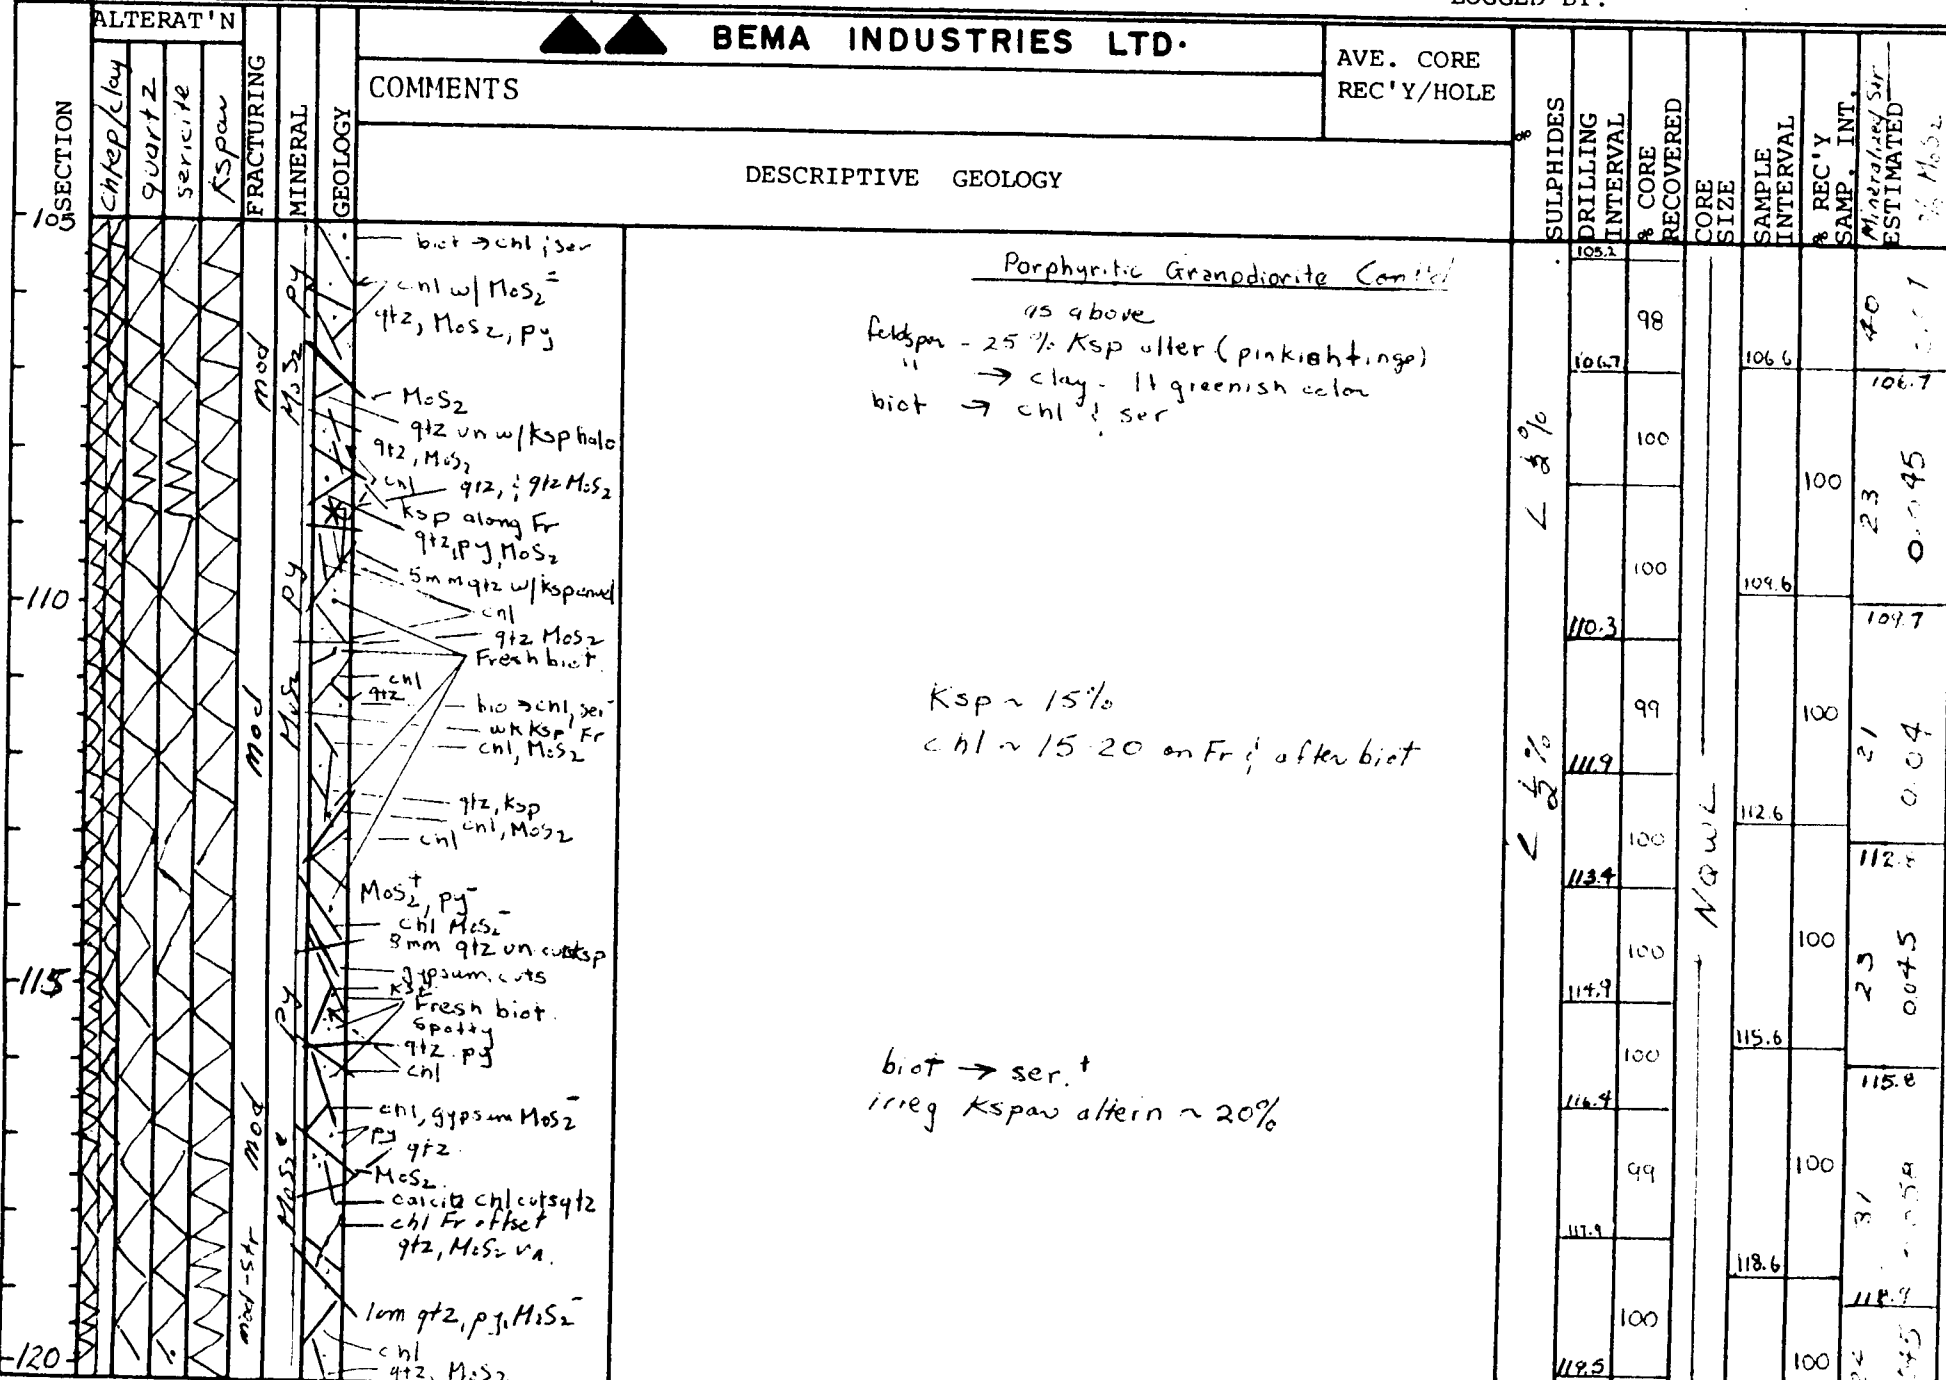 LOGGED BY:
ALTERAT'N
BEMA INDUSTRIES LTD.
COMMENTS
AVE. CORE
REC'Y/HOLE
DESCRIPTIVE GEOLOGY
SECTION
quartz
sericite
Kspar
FRACTURING
MINERAL
GEOLOGY
% SULPHIDES
DRILLING
INTERVAL
% CORE
RECOVERED
CORE
SIZE
SAMPLE
INTERVAL
% REC'Y
SAMP. INT.
ESTIMATED
% MoS2
105
110
115
120
mod
Mod
Mod
mod-str
py
MoS2
py
MoS2
py
MoS2
biot → chl ; ser
chl w/ MoS2-
qtz, MoS2, py
MoS2
qtz vn w/ Ksp halo
qtz, MoS2
chl
qtz, & qtz MoS2
Ksp along Fr
qtz, py, MoS2
5mm qtz w/ Kspar
chl
qtz MoS2
Fresh biot.
chl
qtz
bio → chl, ser-
wk Ksp Fr
chl, MoS2
qtz, Ksp
chl, MoS2
chl
MoS2+, py-
chl MoS2-
8mm qtz vn cuts Ksp
gypsum cuts
Ksp
Fresh biot.
spotty
qtz py
chl
chl, gypsum MoS2-
py
qtz
MoS2
calcite chl cuts qtz
chl Fr offset
qtz, MoS2 vn.
1cm qtz, py, MoS2-
chl
qtz, MoS2
Porphyritic Granodiorite Cont'd
as above
feldspar - 25% Ksp alter (pinkish tinge)
" → clay - lt greenish color
biot → chl & ser
Ksp ~ 15%
chl ~ 15-20 on Fr & after biot
biot → ser.+
irreg Kspar altein ~ 20%
< ½ %
< ½ %
105.2
106.7
110.3
111.9
113.4
114.9
116.4
117.9
119.5
98
100
100
99
100
100
100
99
100
NQWL
106.6
109.6
112.6
115.6
118.6
100
100
100
100
100
40
106.7
23
0.045
109.7
21
0.04
23
0.045
115.8
31